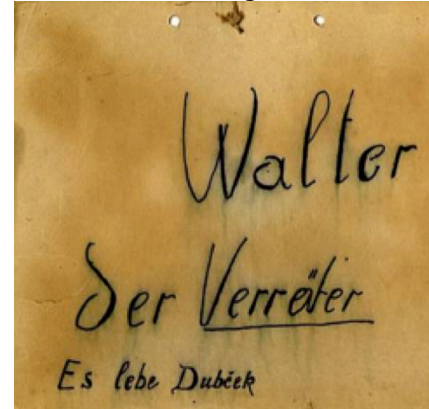 Walter
der Verräter
Es lebe Dubček